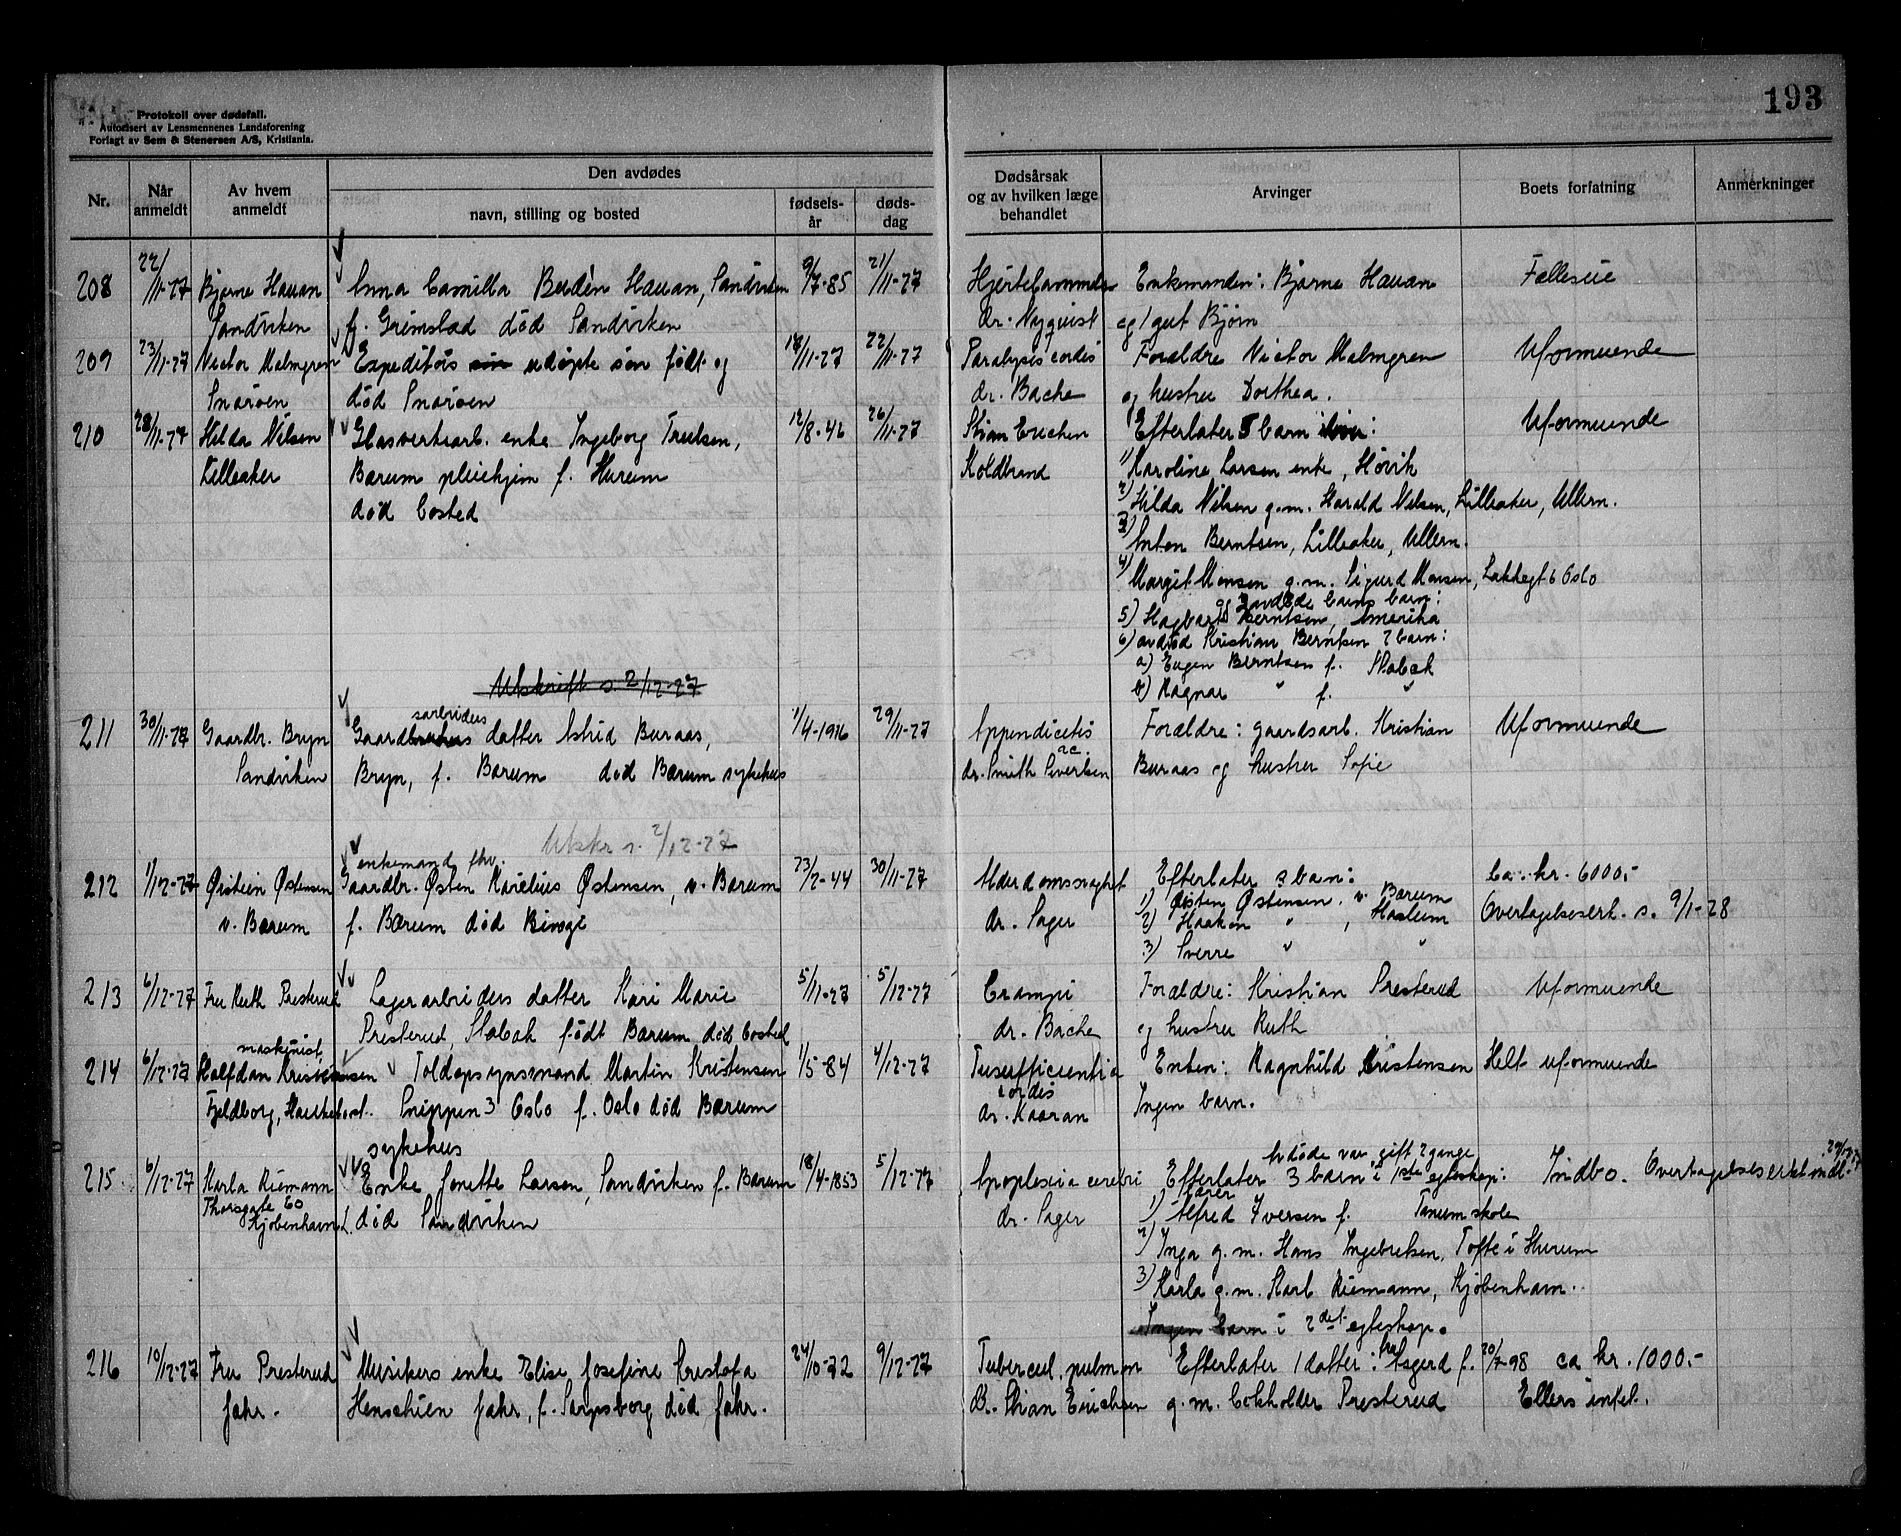 193
Protokoll over dødsfall.
Autorisert av Lensmennenes Landsforening
Forlagt av Sem & Stenersen A/S, Kristiania.
Nr. Når anmeldt Av hvem anmeldt Den avdødes navn, stilling og bosted fødselsår dødsdag Dødsårsak og av hvilken læge behandlet Arvinger Boets forfatning Anmerkninger
208 22/11-27 Bjarne Hauan Anna Camilla Budén Hauan, Sandviken 9/7-85 21/11-27 Enkemanden: Bjarne Hauan Fælleseie
Sandviken f. Grimstad død Sandviken dr. Nyquist og 1 gut Bjørn
209 23/11-27 Victor Malmgren Expeditørs udøpte søn født og 18/11-27 22/11-27 Paralyses cordis Forældre Victor Malmgren Uformuende
Snarøen død Snarøen dr. Bache og hustru Dorthea.
210 28/11-27 Hilda Nilsen Glasverksarb. enke Ingeborg Trulsen, 12/8-46 26/11-27 Stian Erichsen Efterlater 5 barn Uformuende
Lilleaker Bærum pleiehjem f. Hurum Koldbrand 1) Karoline Larsen enke, Høvik
død bosted 2) Hilda Nilsen g.m. Harald Nilsen, Lilleaker, Ullern.
3) Anton Berntsen, Lilleaker, Ullern.
4) Margit Monsen g.m. Sigurd Monsen, Lakkegt 6 Oslo
og 2 avdøde barns barn:
5) Hagbart Berntsen, Amerika
6) avdød Kristian Berntsen 2 barn:
a) Eugen Berntsen f. Stabæk
b) Ragnar " f. "
Utskrift s. 2/12-27
211 30/11-27 Gaardbr. Bryn Gaardsarbeiders datter Astrid Buraas, 1/4-1916 29/11-27 Appendicitis ac. Forældre: gaardsarb. Kristian Uformuende
Sandviken Bryn, f. Bærum død Bærum sykehus dr. Smith Sivertsen Buraas og hustru Sofie
Utskr s. 2/12-27
212 1/12-27 Øistein Østensen enkemand fhv. Gaardbr. Østen Karelius Østensen, v. Bærum 23/2-44 30/11-27 Alderdomssvaghet Efterlater 3 barn: Ca. kr. 6000.-
v. Bærum f. Bærum død dr. Sager 1) Østen Østensen. v. Bærum Overtagelseserk. s. 9/1-28
2) Haakon " , Haslum
3) Sverre " "
213 6/12-27 Fru Ruth Presterud Lagerarbeiders datter Kari Marie 5/11-27 5/12-27 Crampi Forældre: Kristian Presterud Uformuende
Presterud, Stabæk født Bærum død bosted dr. Bache og hustru Ruth
214 6/12-27 maskinist, Halfdan Kristensen Toldopsynsmand Martin Kristensen 1/5-84 4/12-27 Insufficientia cordis Enken: Ragnhild Kristensen Helt uformuende
Fjeldborg, Snippen 3 Oslo f. Oslo død Bærum sykehus dr. Kaaran Ingen barn.
215 6/12-27 Karla Riemann Enke Janette Larsen, Sandviken f. Bærum 18/4-1853 5/12-27 Apoplexia cerebri Avdøde var gift 2 gange Efterlater 3 barn i 1ste egteskap: Indbo. Overtagelseserk
Thorsgate 60 Kjøbenhavn død Sandviken dr. Sager 1) lærer Alfred Iversen f. Tanum skole
2) Inga g.m. Hans Ingebretsen, Tofte i Hurum
3) Karla g.m. Karl Riemann, Kjøbenhavn.
Ingen barn i 2det egteskap.
216 10/12-27 Fru Presterud Musikers enke Elise Josefine Kristofa 24/10-72 9/12-27 Tubercul. pulmon Efterlater 1 datter: fru Asgerd f. 20/7-98 ca kr. 1000.-
Jahr. Henschien Jahr, f. Sarpsborg død Jahr. Dr. Stian Erichsen g.m. bokholder Presterud Ellers intet.